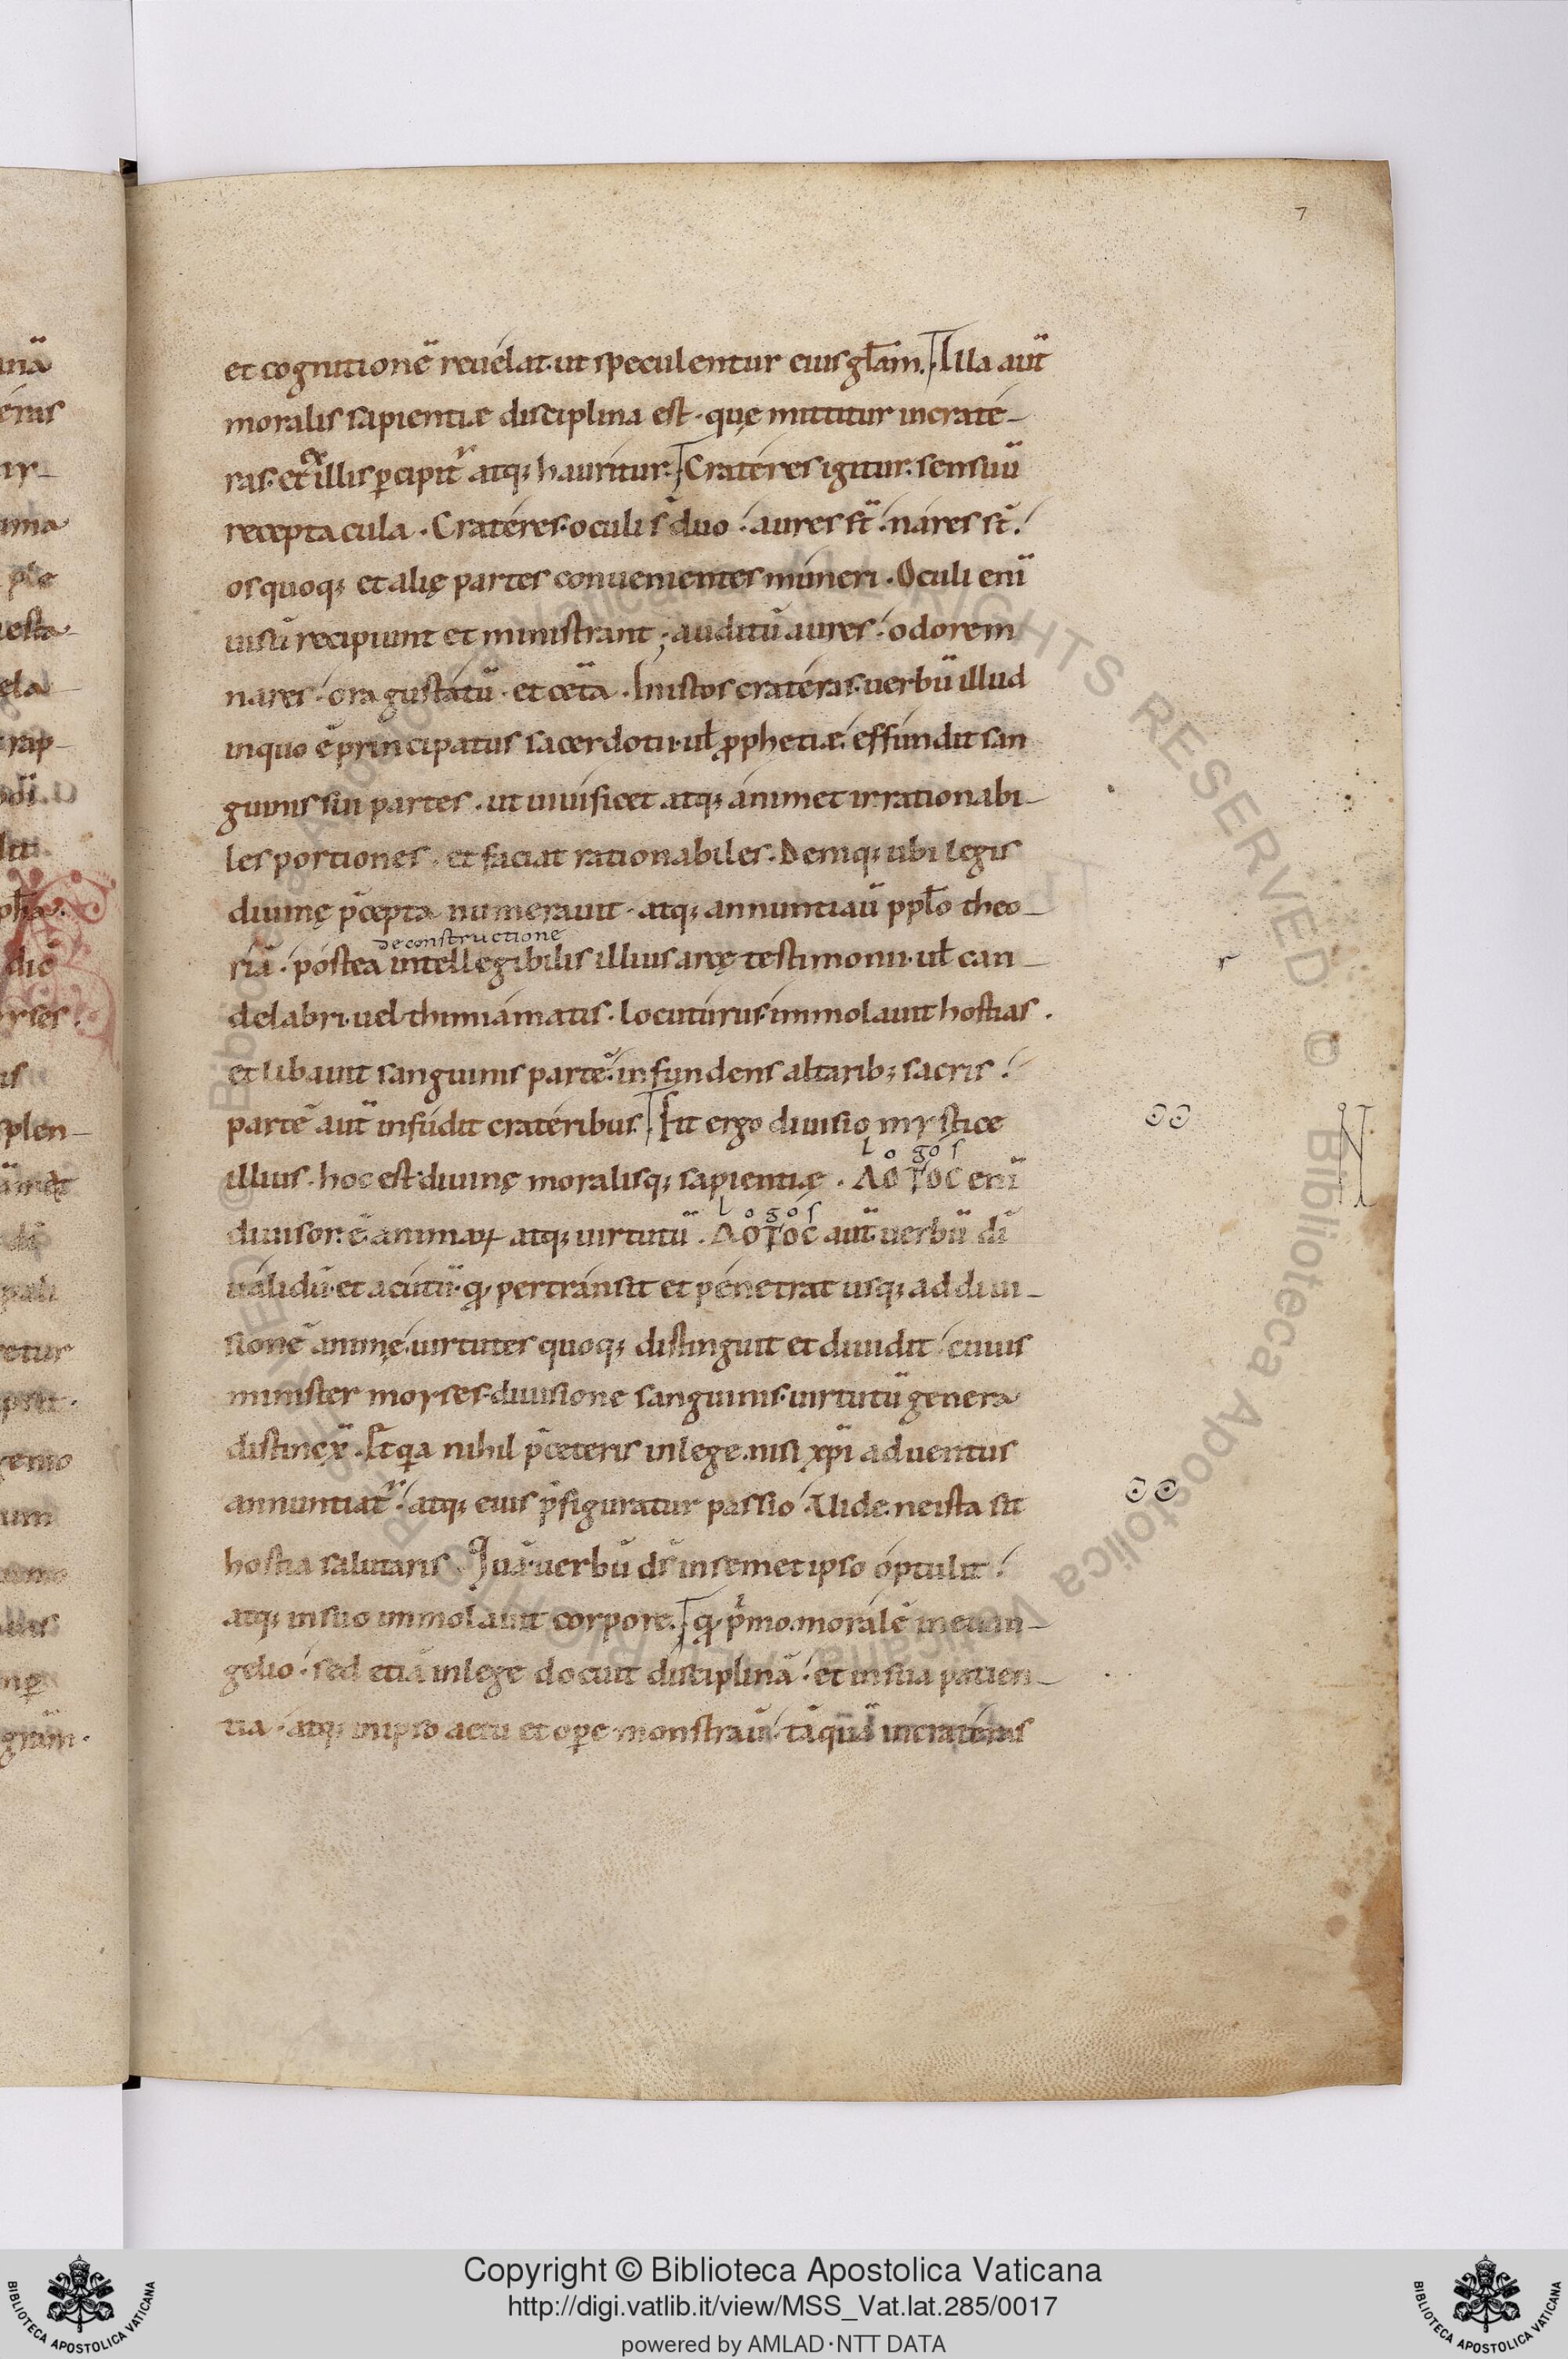 7
et cognitionē reuélat· ut speculentur eius gl̄am. Illa aut̄
moralis sapientiæ disciplina est · quę mittitur incraté-
ras· et ex illis ꝑcipit᷑ atq; hauritur. Cratéres igitur· sensuū
receptacula · Cratéres· oculi s̄ duo · aures st̄ · náres st̄ ·
os quoq; et alię partes conuenientes múneri · Oculi enī
uisū recipiunt et ministrant ; auditū aures · odorem
nares · ora gustátū · et cet̄a · Inistos cratéras· uerbū illud
inquo ē principatus sacerdotii· ul̄ ꝓphetiæ· effúndit san
guinis sui partes · ut uiuificet atq; ánimet irrationabi-
les portiones · et faciat rationabiles · Deniq; ubi legis
diuinę p̄cepta numerauit · atq; annuntiaū ppl̄o theo-
de constructione
riā · póstea intellegibilis illius arcę testimonii· ul̄ can-
delabri· uel thimiámatis · locutúrus· immolauit hostias ·
et libauit sanguinis partē· infundens altarib; sacris ·
partē aut̄ infúdit cratéribus. Fit ergo diuisio mysticę
logos
illius · hoc est· diuinę moralisq; sapientię · ΛΟΓΟC enī
logos
diuisor ē animaꝝ atq; uirtutū · ΛΟΓΟC aut̄ uerbū dī
uálidū· et acútū· qđ pertránsit et pénetrat usq; ad diui-
sionē animę· uirtutes quoq; distinguit et diuidit · cuius
minister moyses· diuisione sanguinis· uirtutū genera
distinx̄ · Et qa nihil p̄ceteris inlege · nisi xp̄i aduentus
annuntiat᷑ · atq; eius p̄figuratur passio · Uide· ne ista sit
hostia salutaris · Quā· uerbū ds̄ insemet ipso óptulit ·
atq; insuo immolauit corpore. qđ p̄mo· morálē ineuan-
gelio · sed etiā inlege docuit disciplinā · et insua patien-
tia · atq; inipso actu et oꝑe· monstraū · tāquā incratéras
Copyright © Biblioteca Apostolica Vaticana
http://digi.vatlib.it/view/MSS_Vat.lat.285/0017
powered by AMLAD·NTT DATA
BIBLIOTECA APOSTOLICA VATICANA
BIBLIOTECA APOSTOLICA VATICANA